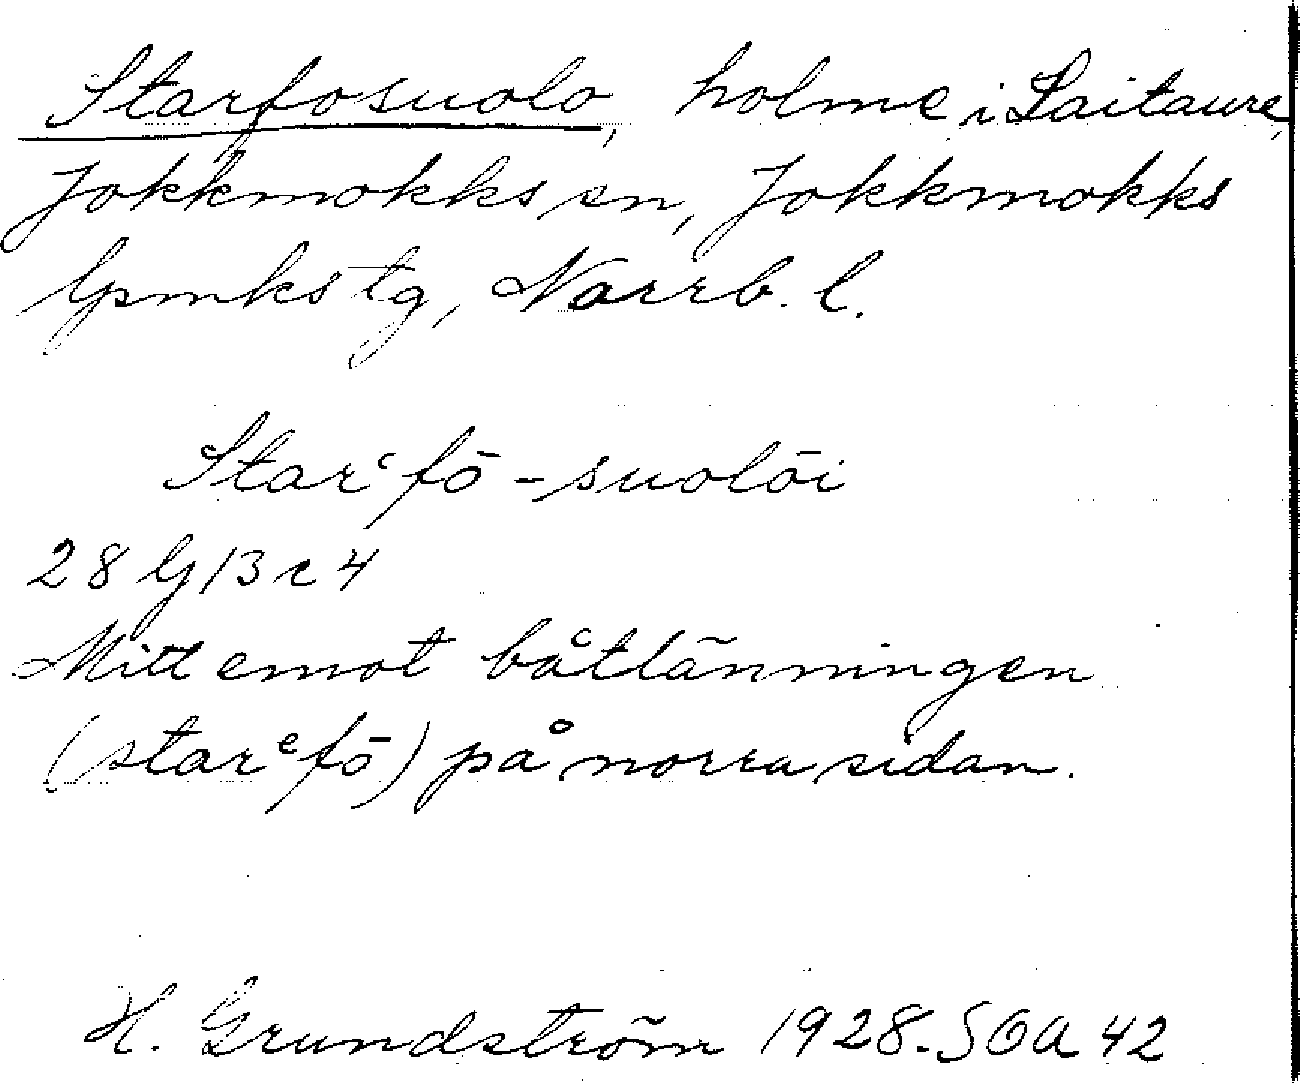 Starfosuolo, holme i Laitaure,
Jokkmokks sn, Jokkmokks
lpmks tg, Norrb. l.
Starᵉfō-suolōi
28 G 13 c 4
Mitt emot båtlänningen
(starᵉfō) på norra sidan.
H. Grundström 1928. SOA 42